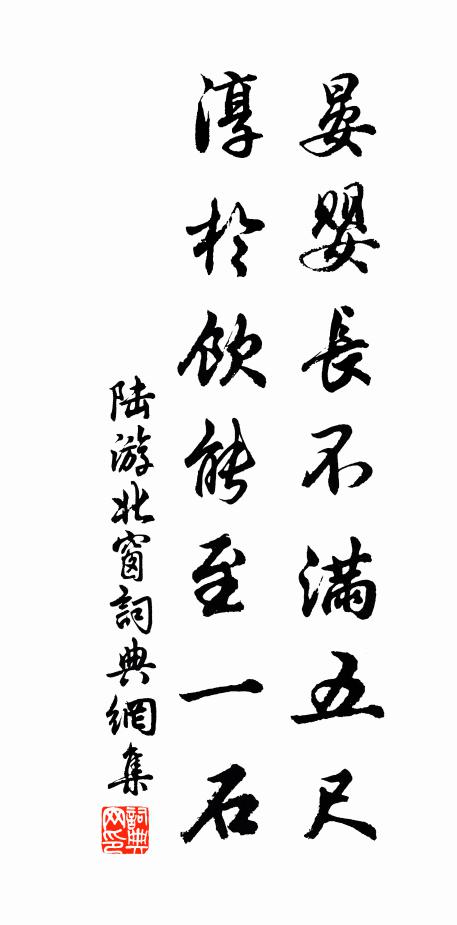 晏嬰長不滿五尺
淳於飲能至一石
陆游北窗詞典網集
詞典網印